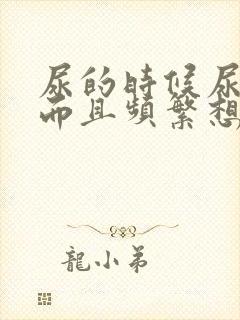 尿的時候尿
而且頻繁想
龍小弟